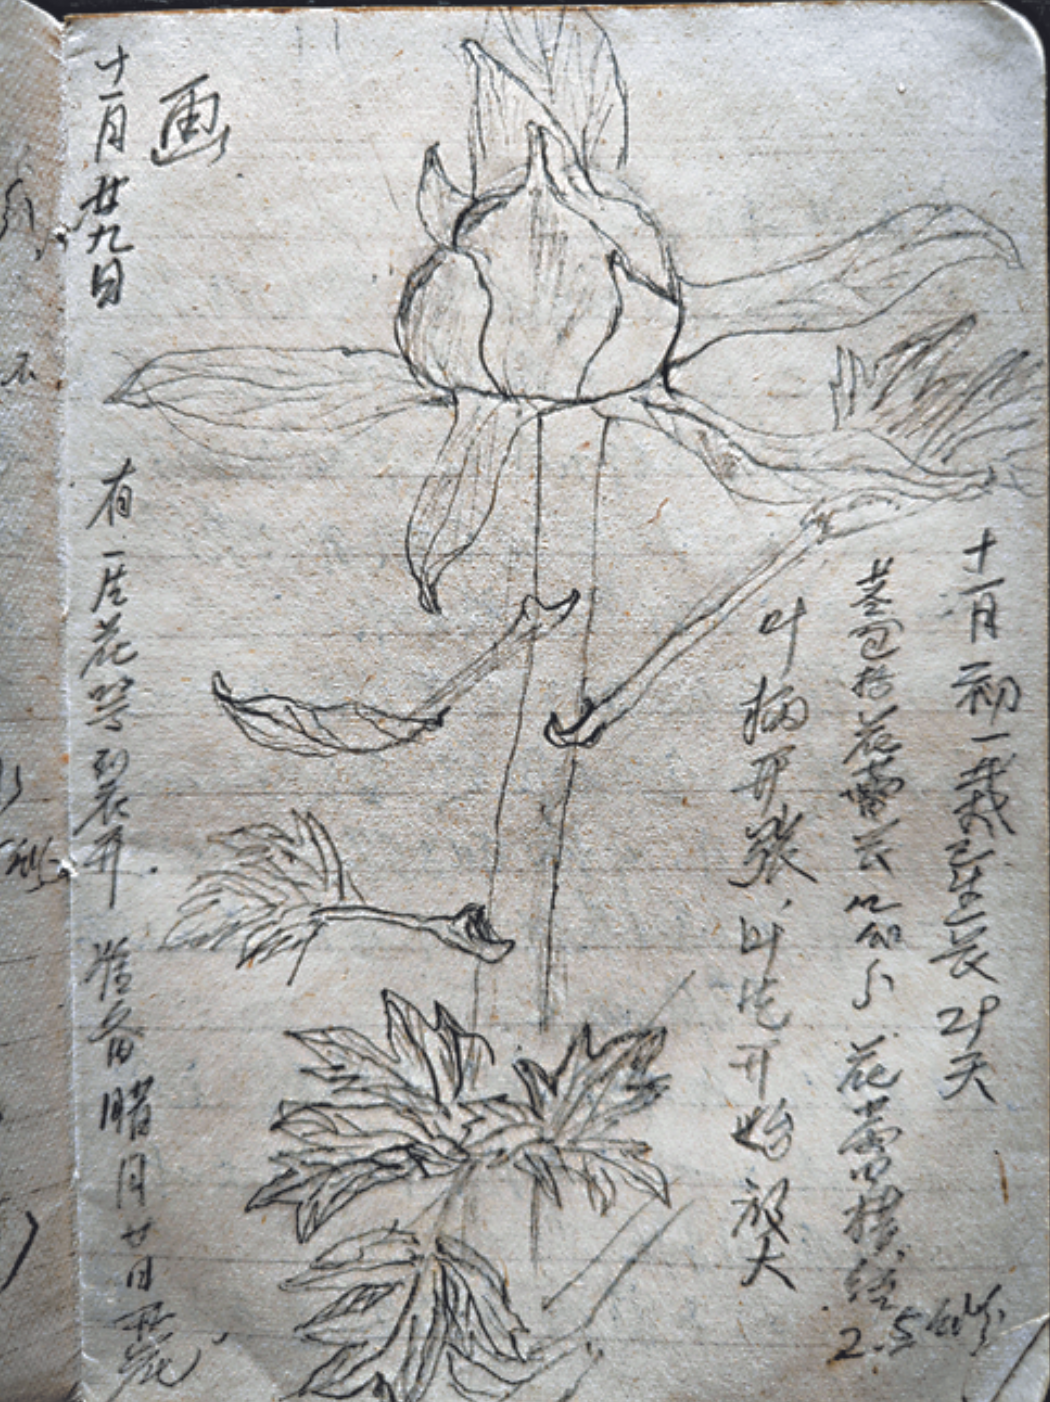 十一月初一栽已生长29天
茎包括花蕾长
花蕾横径
2.5
叶柄开张、叶片开始放大
画
十一月廿九日
有一层花萼裂开.准备腊月廿日开花